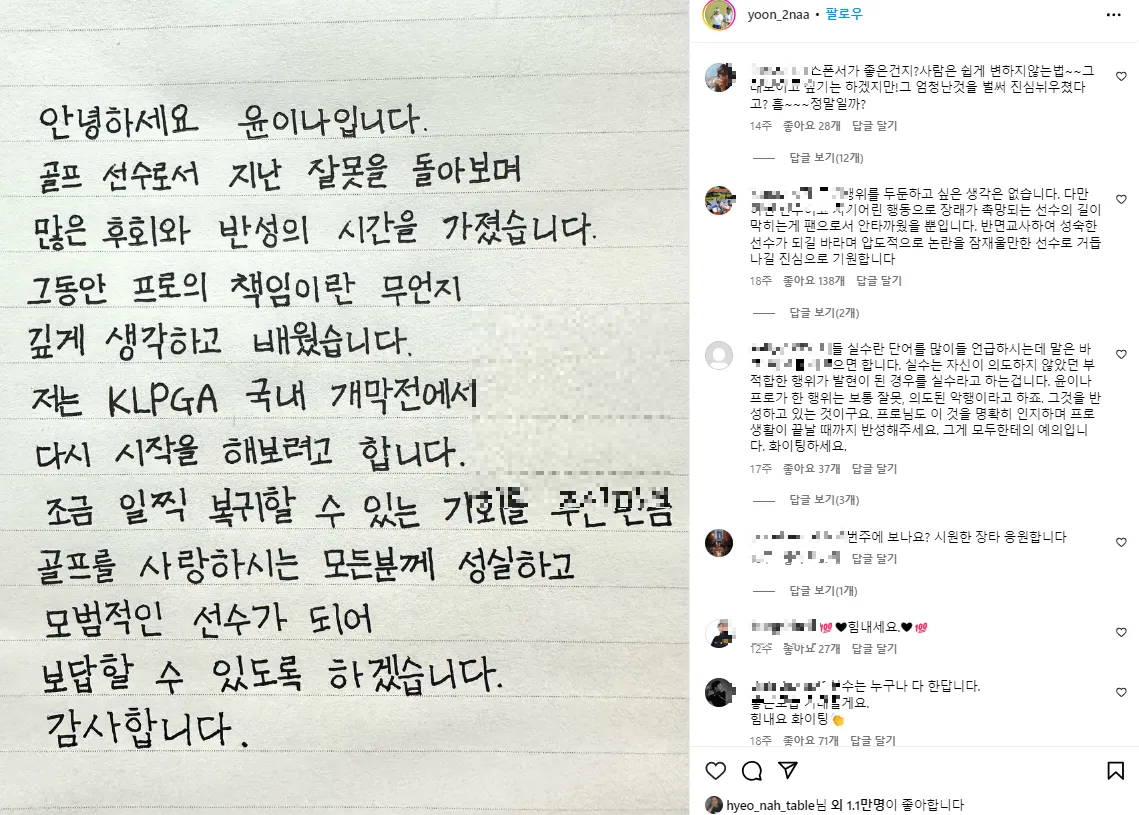 안녕하세요 윤이나입니다.
골프 선수로서 지난 잘못을 돌아보며
많은 후회와 반성의 시간을 가졌습니다.
그동안 프로의 책임이란 무언지
깊게 생각하고 배웠습니다.
저는 KLPGA 국내 개막전에서
다시 시작을 해보려고 합니다.
조금 일찍 복귀할 수 있는 기회를 주신만큼
골프를 사랑하시는 모든분께 성실하고
모범적인 선수가 되어
보답할 수 있도록 하겠습니다.
감사합니다.
yoon_2naa • 팔로우
스폰서가 좋은건지?사람은 쉽게 변하지않는법~~그
싶기는 하겠지만!그 엄청난것을 벌써 진심뉘우쳤다
고? 흠~~~정말일까?
14주 좋아요 28개 답글 달기
답글 보기(12개)
행위를 두둔하고 싶은 생각은 없습니다. 다만
치기어린 행동으로 장래가 촉망되는 선수의 길이
막히는게 팬으로서 안타까웠을 뿐입니다. 반면교사하여 성숙한
선수가 되길 바라며 압도적으로 논란을 잠재울만한 선수로 거듭
나길 진심으로 기원합니다
18주 좋아요 138개 답글 달기
답글 보기(2개)
들 실수란 단어를 많이들 언급하시는데 말은 바
으면 합니다. 실수는 자신이 의도하지 않았던 부
적합한 행위가 발현이 된 경우를 실수라고 하는겁니다. 윤이나
프로가 한 행위는 보통 잘못, 의도된 악행이라고 하죠. 그것을 반
성하고 있는 것이구요. 프로님도 이 것을 명확히 인지하며 프로
생활이 끝날 때까지 반성해주세요. 그게 모두한테의 예의입니
다. 화이팅하세요.
17주 좋아요 37개 답글 달기
답글 보기(3개)
번주에 보나요? 시원한 장타 응원합니다
답글 달기
답글 보기(1개)
💯🖤힘내세요.🖤💯
12주 좋아요 27개 답글 달기
실수는 누구나 다 한답니다.
힘내요 화이팅👏
18주 좋아요 71개 답글 달기
hyeo_nah_table님 외 1.1만명이 좋아합니다